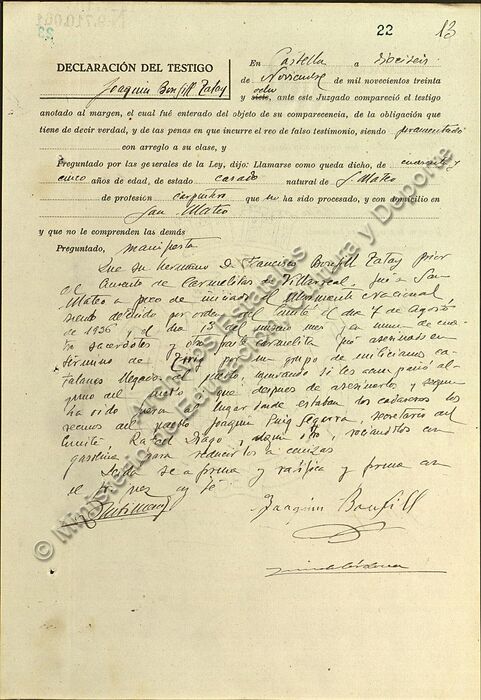 22 13
DECLARACIÓN DEL TESTIGO
Joaquin Bonfill Tatay
En Castelló a dieciseis
de Noviembre de mil novecientos treinta
y ocho, ante este Juzgado compareció el testigo
anotado al margen, el cual fué enterado del objeto de su comparecencia, de la obligación que
tiene de decir verdad, y de las penas en que incurre el reo de falso testimonio, siendo juramentado
con arreglo a su clase, y
Preguntado por las generales de la Ley, dijo: Llamarse como queda dicho, de cuarenta y
cinco años de edad, de estado casado natural de S. Mateo
de profesión carpintero que no ha sido procesado, y con domicilio en
San Mateo
y que no le comprenden las demás
Preguntado, manifiesta
Que su hermano D. Francisco Bonfill Tatay prior
del Convento de Carmelitas de Villarreal, fué a San
Mateo a poco de iniciarse el Movimiento Nacional,
siendo detenido por orden del Comité el dia 7 de Agosto
de 1936 y el dia 13 del mismo mes y en union de cua-
tro sacerdotes y otro padre carmelita fué asesinado en
término de por un grupo de milicianos ca-
talanes llegados al pueblo, ignorando si les acompañó al-
guno del pueblo que despues de asesinarlos y segun
ha oido fueron al lugar donde estaban los cadaveres los
vecinos del pueblo Joaquin Puig Segarra, secretario del
Comité, Rafael Drago, y algun otro, rociandolos con
gasolina para reducirlos a cenizas
Leida se afirma y ratifica y firma con
el Sr. Juez doy fé
Joaquin Bonfill
© Ministerio de Educación, Cultura y Deporte
Archivos Estatales